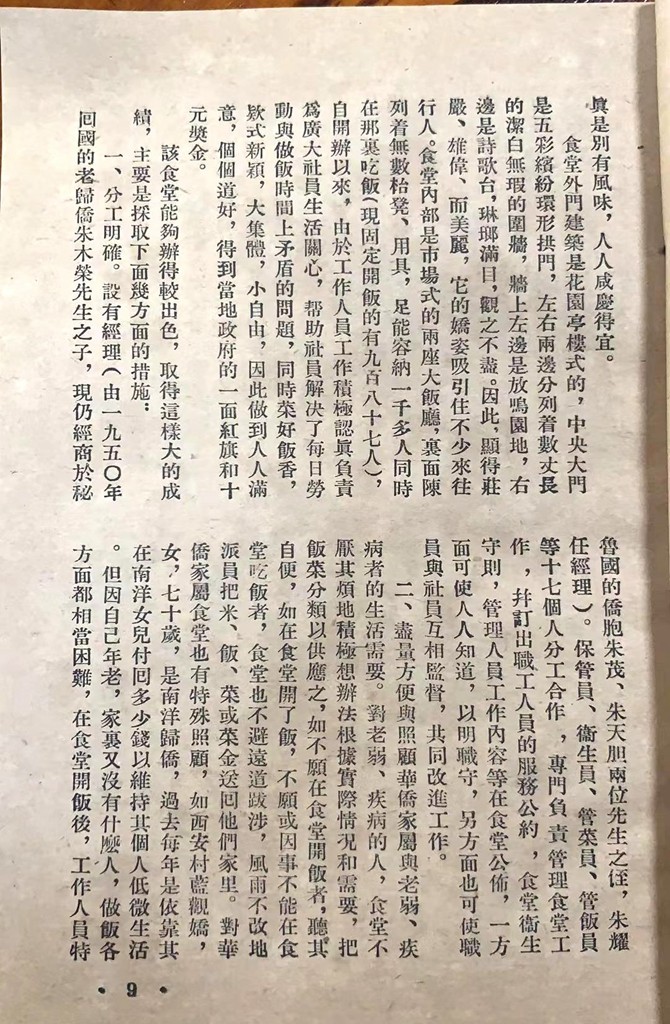 眞是別有風味，人人咸慶得宜。
食堂外門建築是花園亭樓式的，中央大門
是五彩繽紛環形拱門，左右兩邊分列着數丈長
的潔白無瑕的圍牆，牆上左邊是放鳴園地，右
邊是詩歌台，琳瑯滿目，觀之不盡。因此，顯得莊
嚴、雄偉、而美麗，它的嬌姿吸引住不少來往
行人。食堂內部是市場式的兩座大飯廳，裏面陳
列着無數枱凳、用具，足能容納一千多人同時
在那裏吃飯（現固定開飯的有九百八十七人），
自開辦以來，由於工作人員工作積極認眞負責
爲廣大社員生活關心，帮助社員解决了每日勞
動與做飯時間上矛盾的問題，同時菜好飯香，
欵式新穎，大集體，小自由，因此做到人人滿
意，個個道好，得到當地政府的一面紅旗和十
元獎金。
該食堂能夠辦得較出色，取得這樣大的成
績，主要是採取下面幾方面的措施：
一、分工明確。設有經理（由一九五〇年
囘國的老歸僑朱木榮先生之子，現仍經商於秘
魯國的僑胞朱茂、朱天胆兩位先生之侄，朱耀
任經理）。保管員、衞生員、管菜員、管飯員
等十七個人分工合作，專門負責管理食堂工
作，幷訂出職工人員的服務公約，食堂衞生
守則，管理人員工作內容等在食堂公佈，一方
面可使人人知道，以明職守，另方面也可使職
員與社員互相監督，共同改進工作。
二、盡量方便與照顧華僑家屬與老弱、疾
病者的生活需要。對老弱、疾病的人，食堂不
厭其煩地積極想辦法根據實際情况和需要，把
飯菜分類以供應之，如不願在食堂開飯者，聽其
自便，如在食堂開了飯，不願或因事不能在食
堂吃飯者，食堂也不避遠道跋涉，風雨不改地
派員把米、飯、菜或菜金送囘他們家里。對華
僑家屬食堂也有特殊照顧，如西安村藍觀嬌，
女，七十歲，是南洋歸僑，過去每年是依靠其
在南洋女兒付囘多少錢以維持其個人低微生活
。但因自己年老，家裏又沒有什麽人，做飯各
方面都相當困難，在食堂開飯後，工作人員特
• 9 •